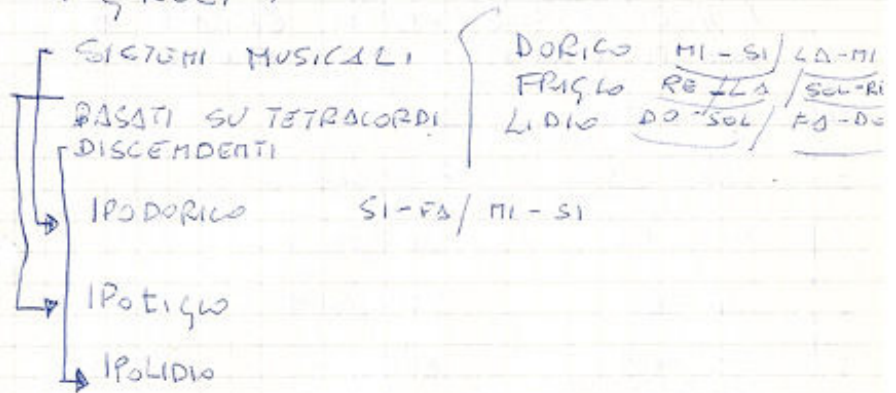 SISTEMI MUSICALI
BASATI SU TETRACORDI
DISCENDENTI
DORICO MI-SI/LA-MI
FRIGIO RE-LA/SOL-RE
LIDIO DO-SOL/FA-DO
IPODORICO SI-FA/MI-SI
IPOLIDIO